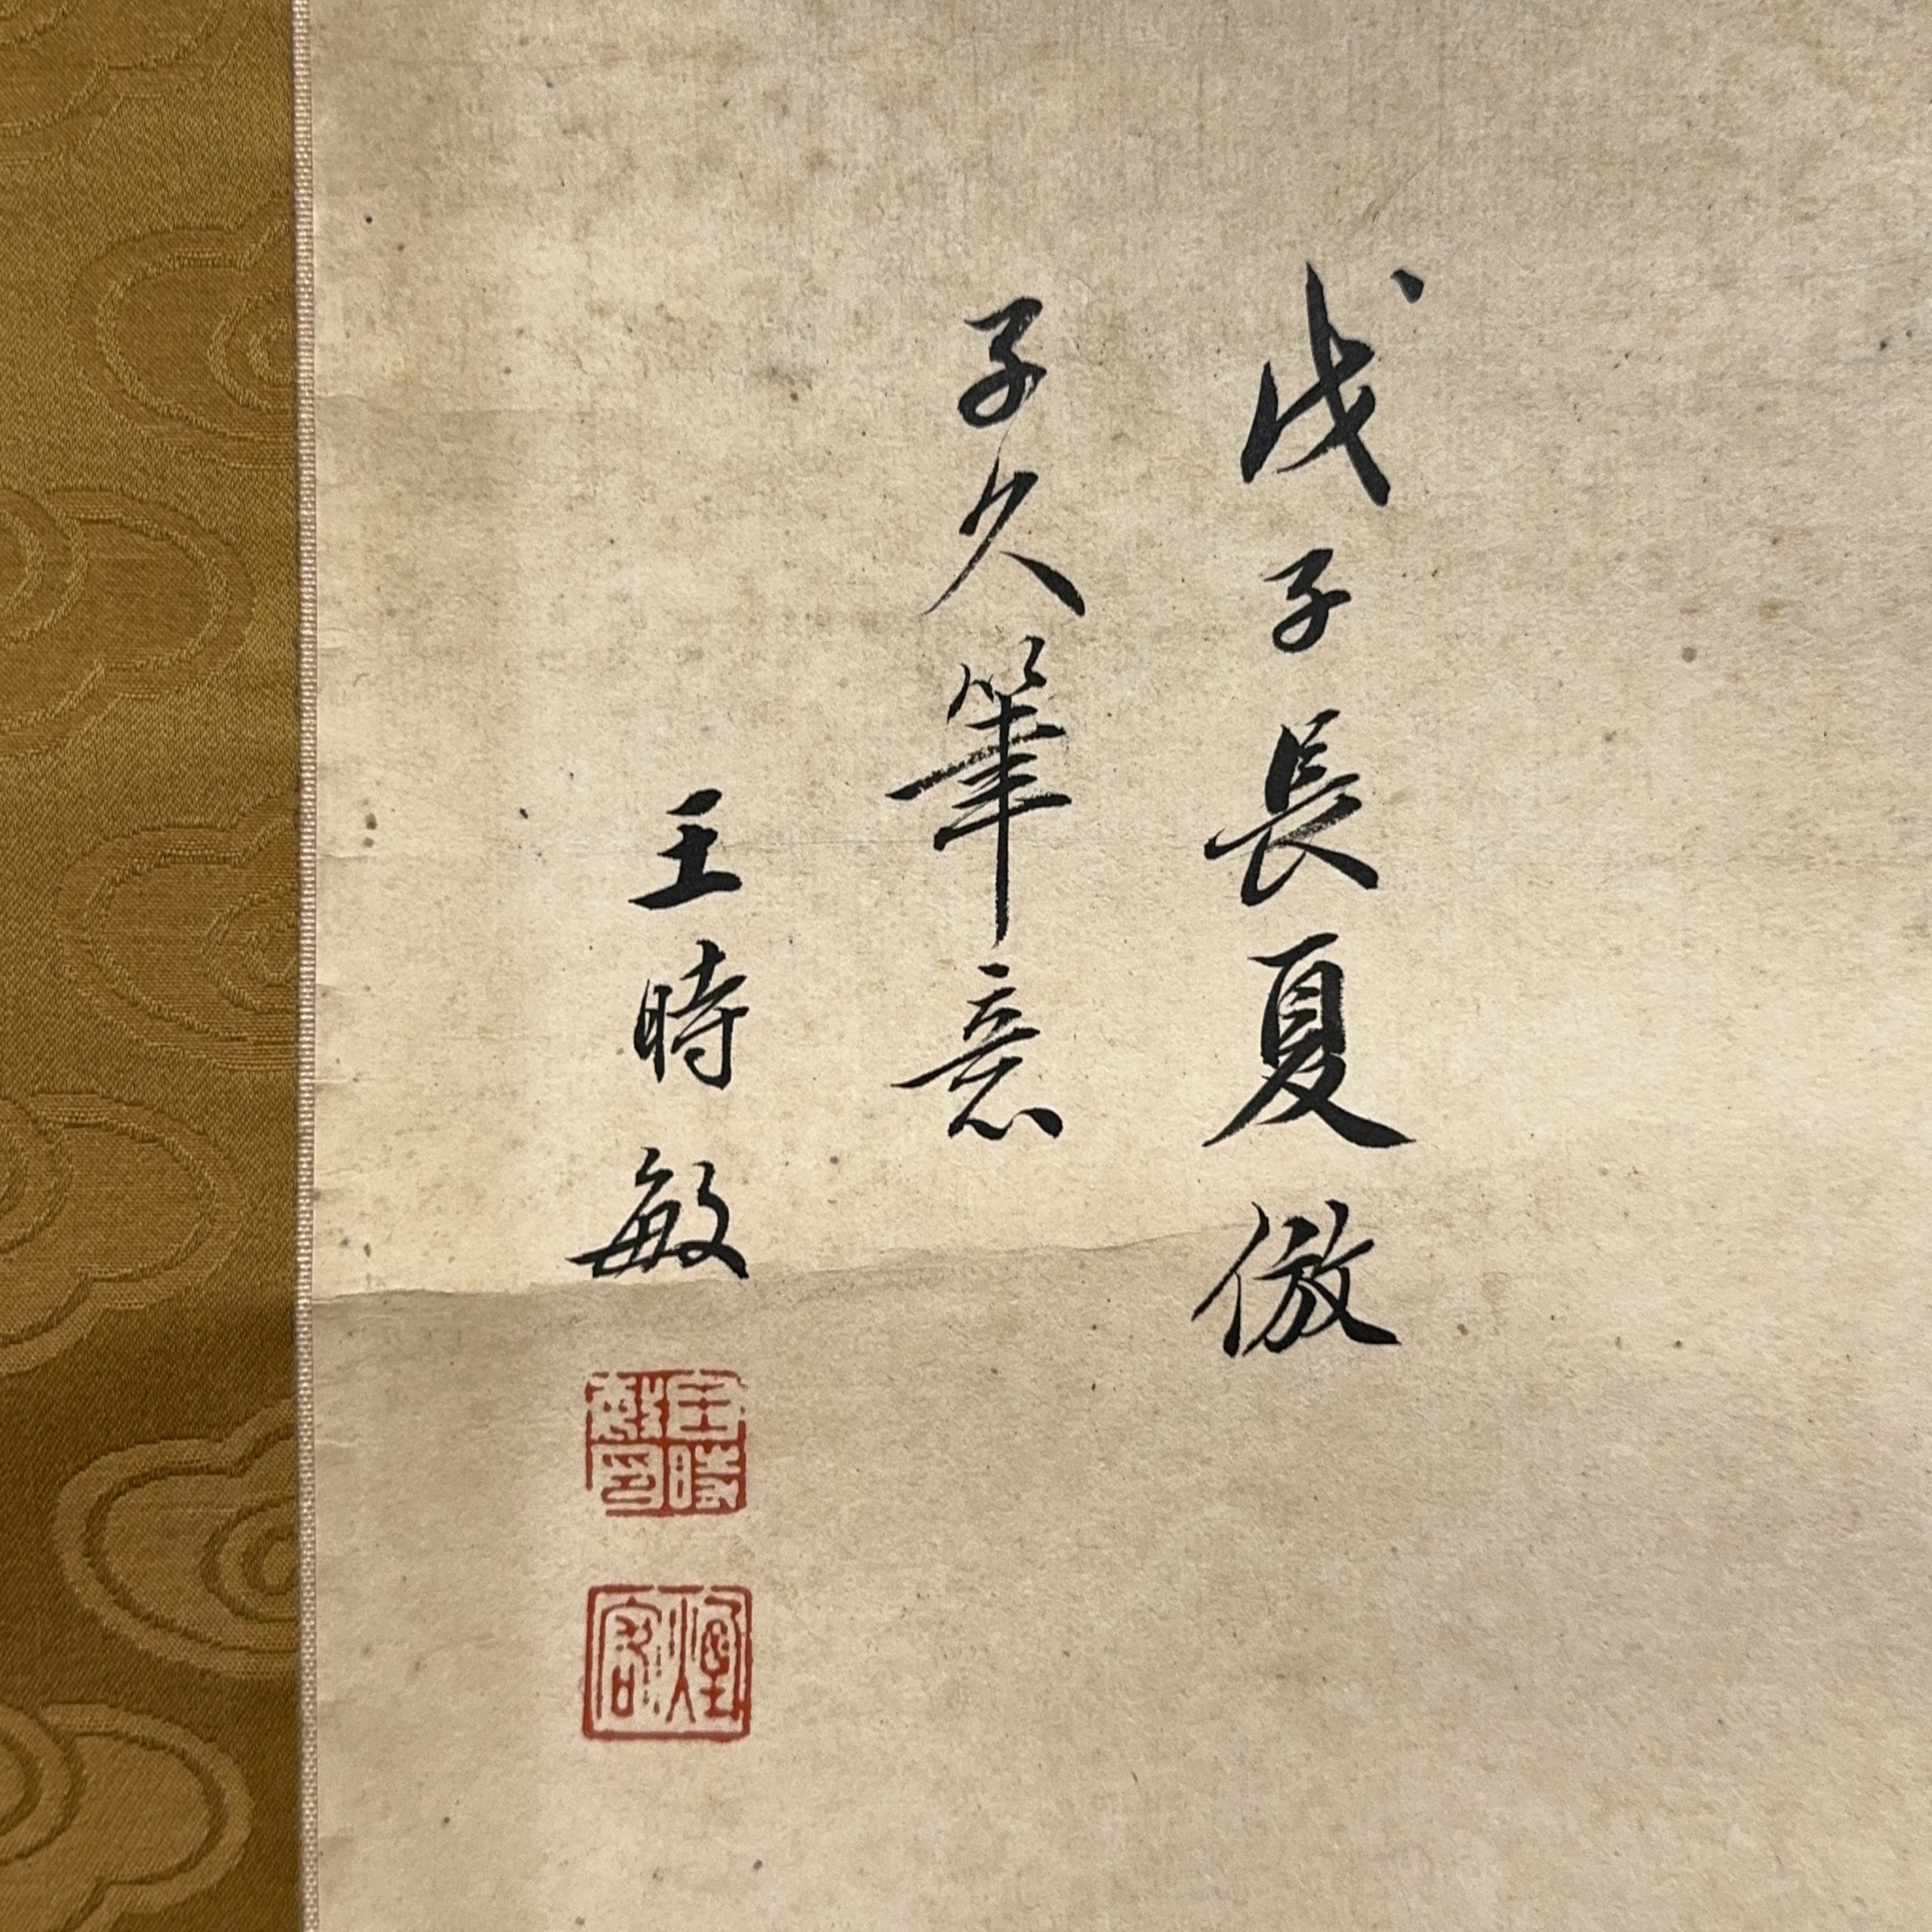 戊子長夏倣
子久筆意
王時敏
王時敏印
煙客